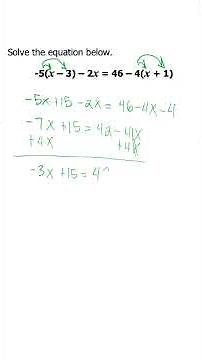 Solve the equation below.
-5(x – 3) – 2x = 46 – 4(x + 1)
-5x+15-2x=46-4x-4
-7x+15=42-4x
+4x +4x
-3x+15=4